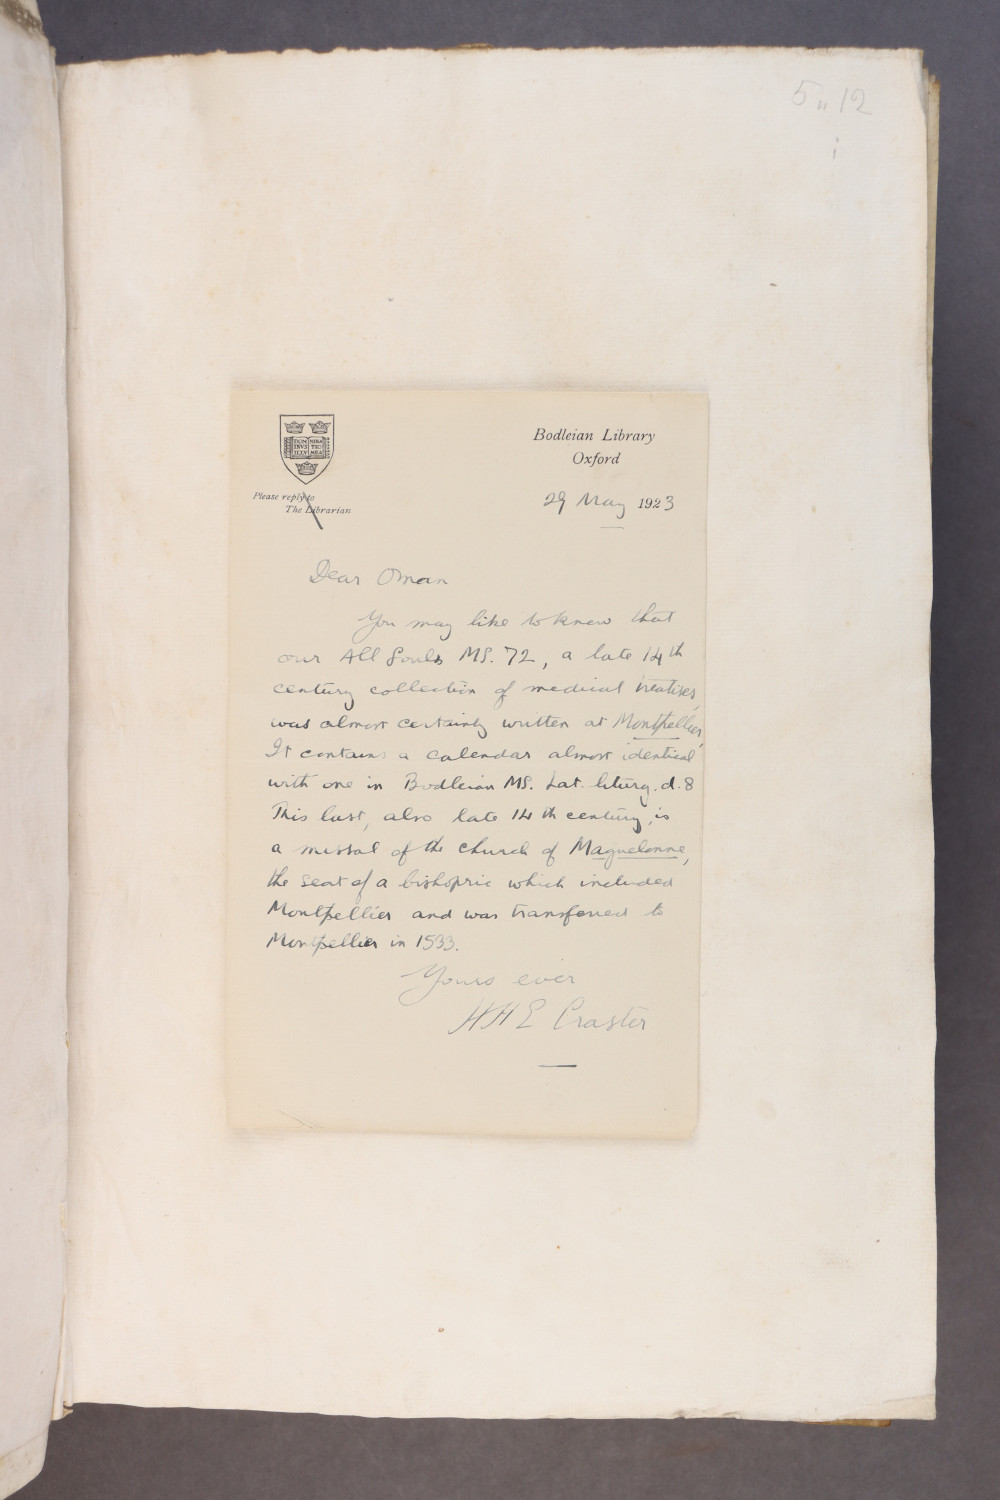 5 " 12
i
DOMI MINA
NVS TIO
ILLV MEA
Bodleian Library
Oxford
Please reply to
The Librarian
29 May 1923
Dear Oman
You may like to know that
our All Souls MS. 72, a late 14th
century collection of medical treatises,
was almost certainly written at Montpellier.
It contains a calendar almost identical
with one in Bodleian MS. Lat. liturg. d. 8
This last, also late 14th century, is
a missal of the church of Maguelonne,
the seat of a bishopric which included
Montpellier and was transferred to
Montpellier in 1533.
Yours ever
HHE Craster